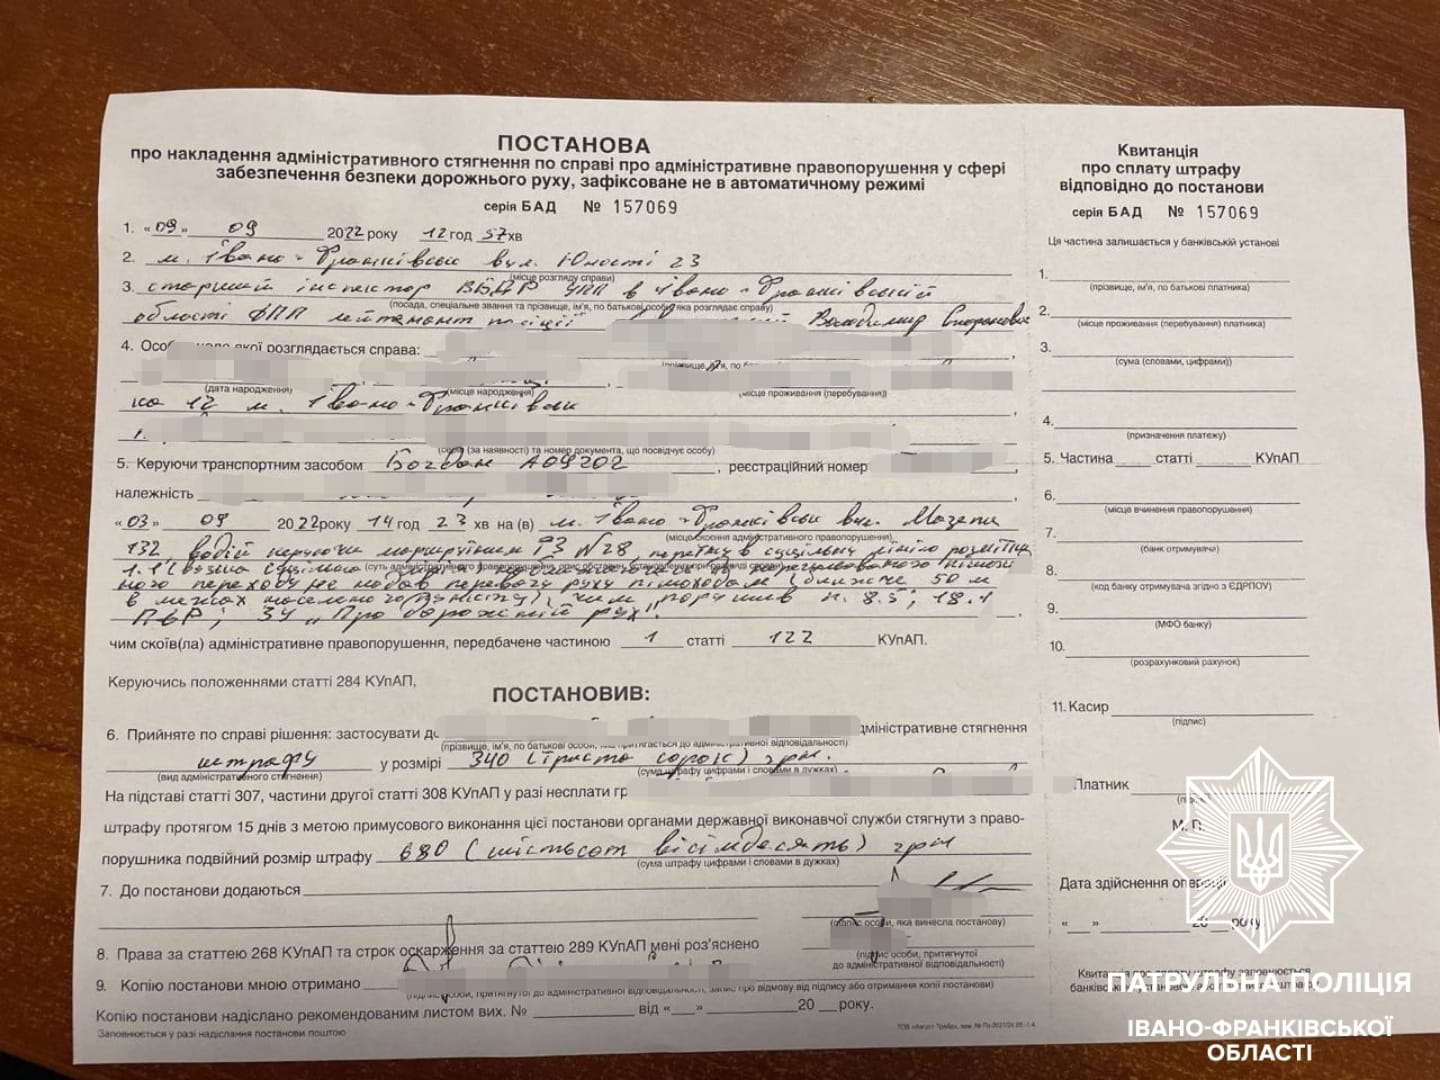 ПОСТАНОВА
про накладення адміністративного стягнення по справі про адміністративне правопорушення у сфері
забезпечення безпеки дорожнього руху, зафіксоване не в автоматичному режимі
серія БАД № 157069
1. «09» 09 2022 року 12 год 57 хв
2. м. Івано-Франківськ вул. Юності 23
(місце розгляду справи)
3. старший інспектор ВБДР УПП в Івано-Франківській
(посада, спеціальне звання та прізвище, ім'я, по батькові особи, яка розглядає справу)
області ДПП лейтенант поліції Володимир
4. Особа, щодо якої розглядається справа:
(дата народження) (місце народження) (місце проживання (перебування))
м. Івано-Франківськ
(за наявності) та номер документа, що посвідчує особу)
5. Керуючи транспортним засобом Богдан А09202, реєстраційний номер
належність
«03» 09 2022 року 14 год 23 хв на (в) м. Івано-Франківськ вул. Мазепи
(місце скоєння адміністративного правопорушення)
132, водій керуючи маршрутним ТЗ №28, перетнув суцільну лінію розмітки
1.1 (вузька суцільна лінія) наближаючись до нерегульованого пішохід
ного переходу не надав перевагу руху пішоходам (ближче 50 м
в межах населеного пункту), чим порушив п. 8.5; 18.1
ПДР, ЗУ „Про дорожній рух".
чим скоїв(ла) адміністративне правопорушення, передбачене частиною 1 статті 122 КУпАП.
Керуючись положеннями статті 284 КУпАП,
ПОСТАНОВИВ:
6. Прийняте по справі рішення: застосувати до адміністративне стягнення
(прізвище, ім'я, по батькові особи, яка притягається до адміністративної відповідальності)
штрафу у розмірі 340 (триста сорок) грн.
(вид адміністративного стягнення) (сума штрафу цифрами і словами в дужках)
На підставі статті 307, частини другої статті 308 КУпАП у разі несплати гр
штрафу протягом 15 днів з метою примусового виконання цієї постанови органами державної виконавчої служби стягнути з право-
порушника подвійний розмір штрафу 680 (шістьсот вісімдесять) грн
(сума штрафу цифрами і словами в дужках)
7. До постанови додаються
(підпис особи, яка винесла постанову)
8. Права за статтею 268 КУпАП та строк оскарження за статтею 289 КУпАП мені роз'яснено
(підпис особи, притягнутої
до адміністративної відповідальності)
9. Копію постанови мною отримано
(підпис особи, притягнутої до адміністративної відповідальності, запис про відмову від підпису або отримання копії постанови)
Копію постанови надіслано рекомендованим листом вих. № від « » 20 року.
Заповнюється у разі надіслання постанови поштою
Квитанція
про сплату штрафу
відповідно до постанови
серія БАД № 157069
Ця частина залишається у банківській установі
1.
(прізвище, ім'я, по батькові платника)
2.
(місце проживання (перебування) платника)
3.
(сума (словами, цифрами))
4.
(призначення платежу)
5. Частина статті КУпАП
6.
(місце вчинення правопорушення)
7.
(банк отримувача)
8.
(код банку отримувача згідно з ЄДРПОУ)
9.
(МФО банку)
10.
(розрахунковий рахунок)
11. Касир
(підпис)
Платник
М. П.
Дата здійснення операції
« » 20 року
Квитанція про сплату штрафу заповнюється
ПАТРУЛЬНА ПОЛІЦІЯ
ІВАНО-ФРАНКІВСЬКОЇ
ОБЛАСТІ